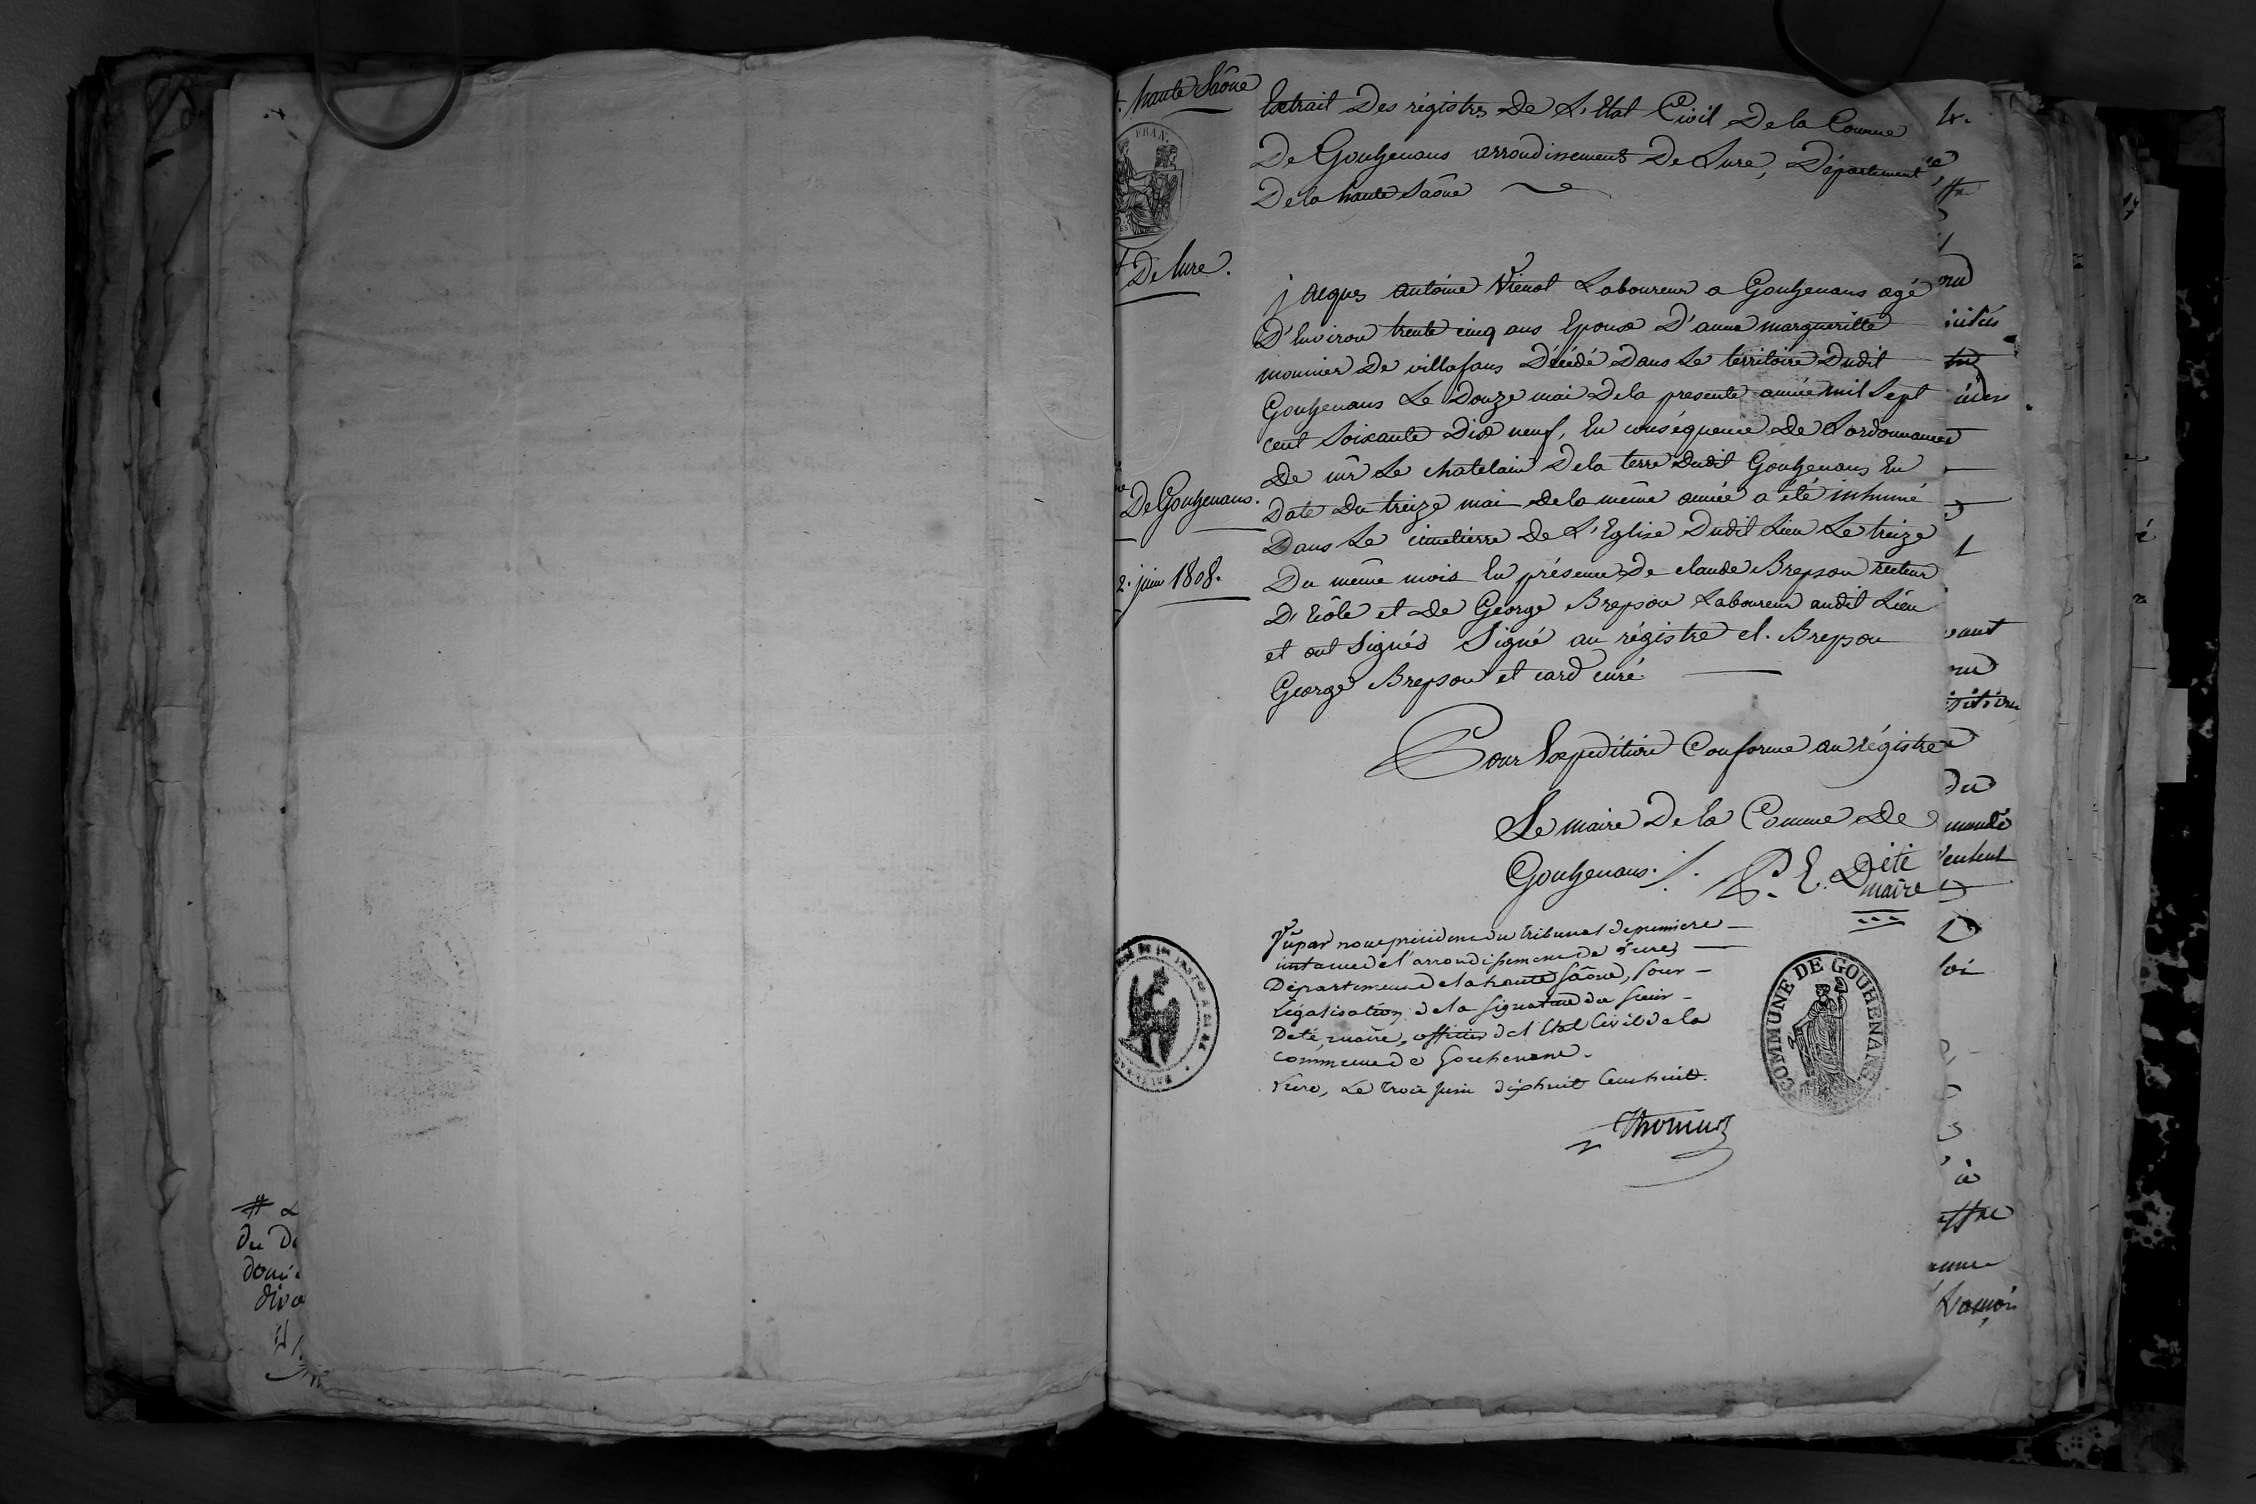 haute Saône
Extrait Des régistres De L'Etat Civil De la Comune
De Gouhenans arrondissement De Lure, Département
De la haute Saône
De Lure.
jacques antoine Vienot Laboureur a Gouhenans agé
D'Environ trente cinq ans Epoux D'anne margueritte
mounier De villafans Décédé Dans Le territoire Dudit
Gouhenans Le Douze mai De la presente année mil Sept
cent Soixante Dix neuf, En conséquence De Lordonnance
De mr Le chatelain De la terre dudit Gouhenans En
Date Du treize mai de la même année a été inhumé
Dans Le cimetierre De L'Eglise Dudit Lieu Le treize
Du même mois En présence De claude Brepson recteur
D'Ecôle et De George Brepson Laboureur audit Lieu
et ont Signés Signé au régistre cl. Brepson
George Brepson et card curé.
De Gouhenans.
2. juin 1808.
Pour Expédition Conforme au régistre
Le maire De la Comune De
Gouhenans ./. P. E. Dété
maire
Vu par nous président du tribunal de premiere
instance de l'arrondissement de Lure,
Département de la haute Saône, pour
Légalisation de la signature du sieur
Dété, maire, officier de l'Etat Civil de la
commune de Gouhenans.
Lure, Le trois juin dixhuit Cent huit.
COMMUNE DE GOUHENANS
# L
du D
divo
vant
Du
à